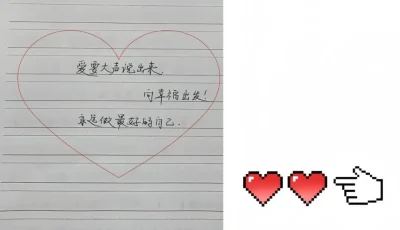 爱要大声说出来
向幸福出发!
永远做最好的自己.